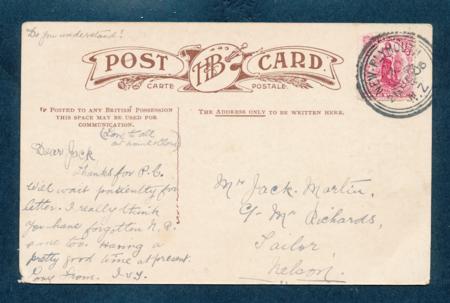 Do you understand!
POST HB CARD.
CARTE POSTALE.
IF POSTED TO ANY BRITISH POSSESSION
THIS SPACE MAY BE USED FOR
COMMUNICATION.
THE ADDRESS ONLY TO BE WRITTEN HERE.
NEW PLYMOUTH
06
N.Z.
(Love to all
Dear Jack
Thanks for P.C.
Will wait patiently for
letter. I really think
you have forgotten N.P.
Having a
pretty good time at present.
Love from.
Mr Jack. Martin.
C/- Mr Richards,
Tailor
Nelson.